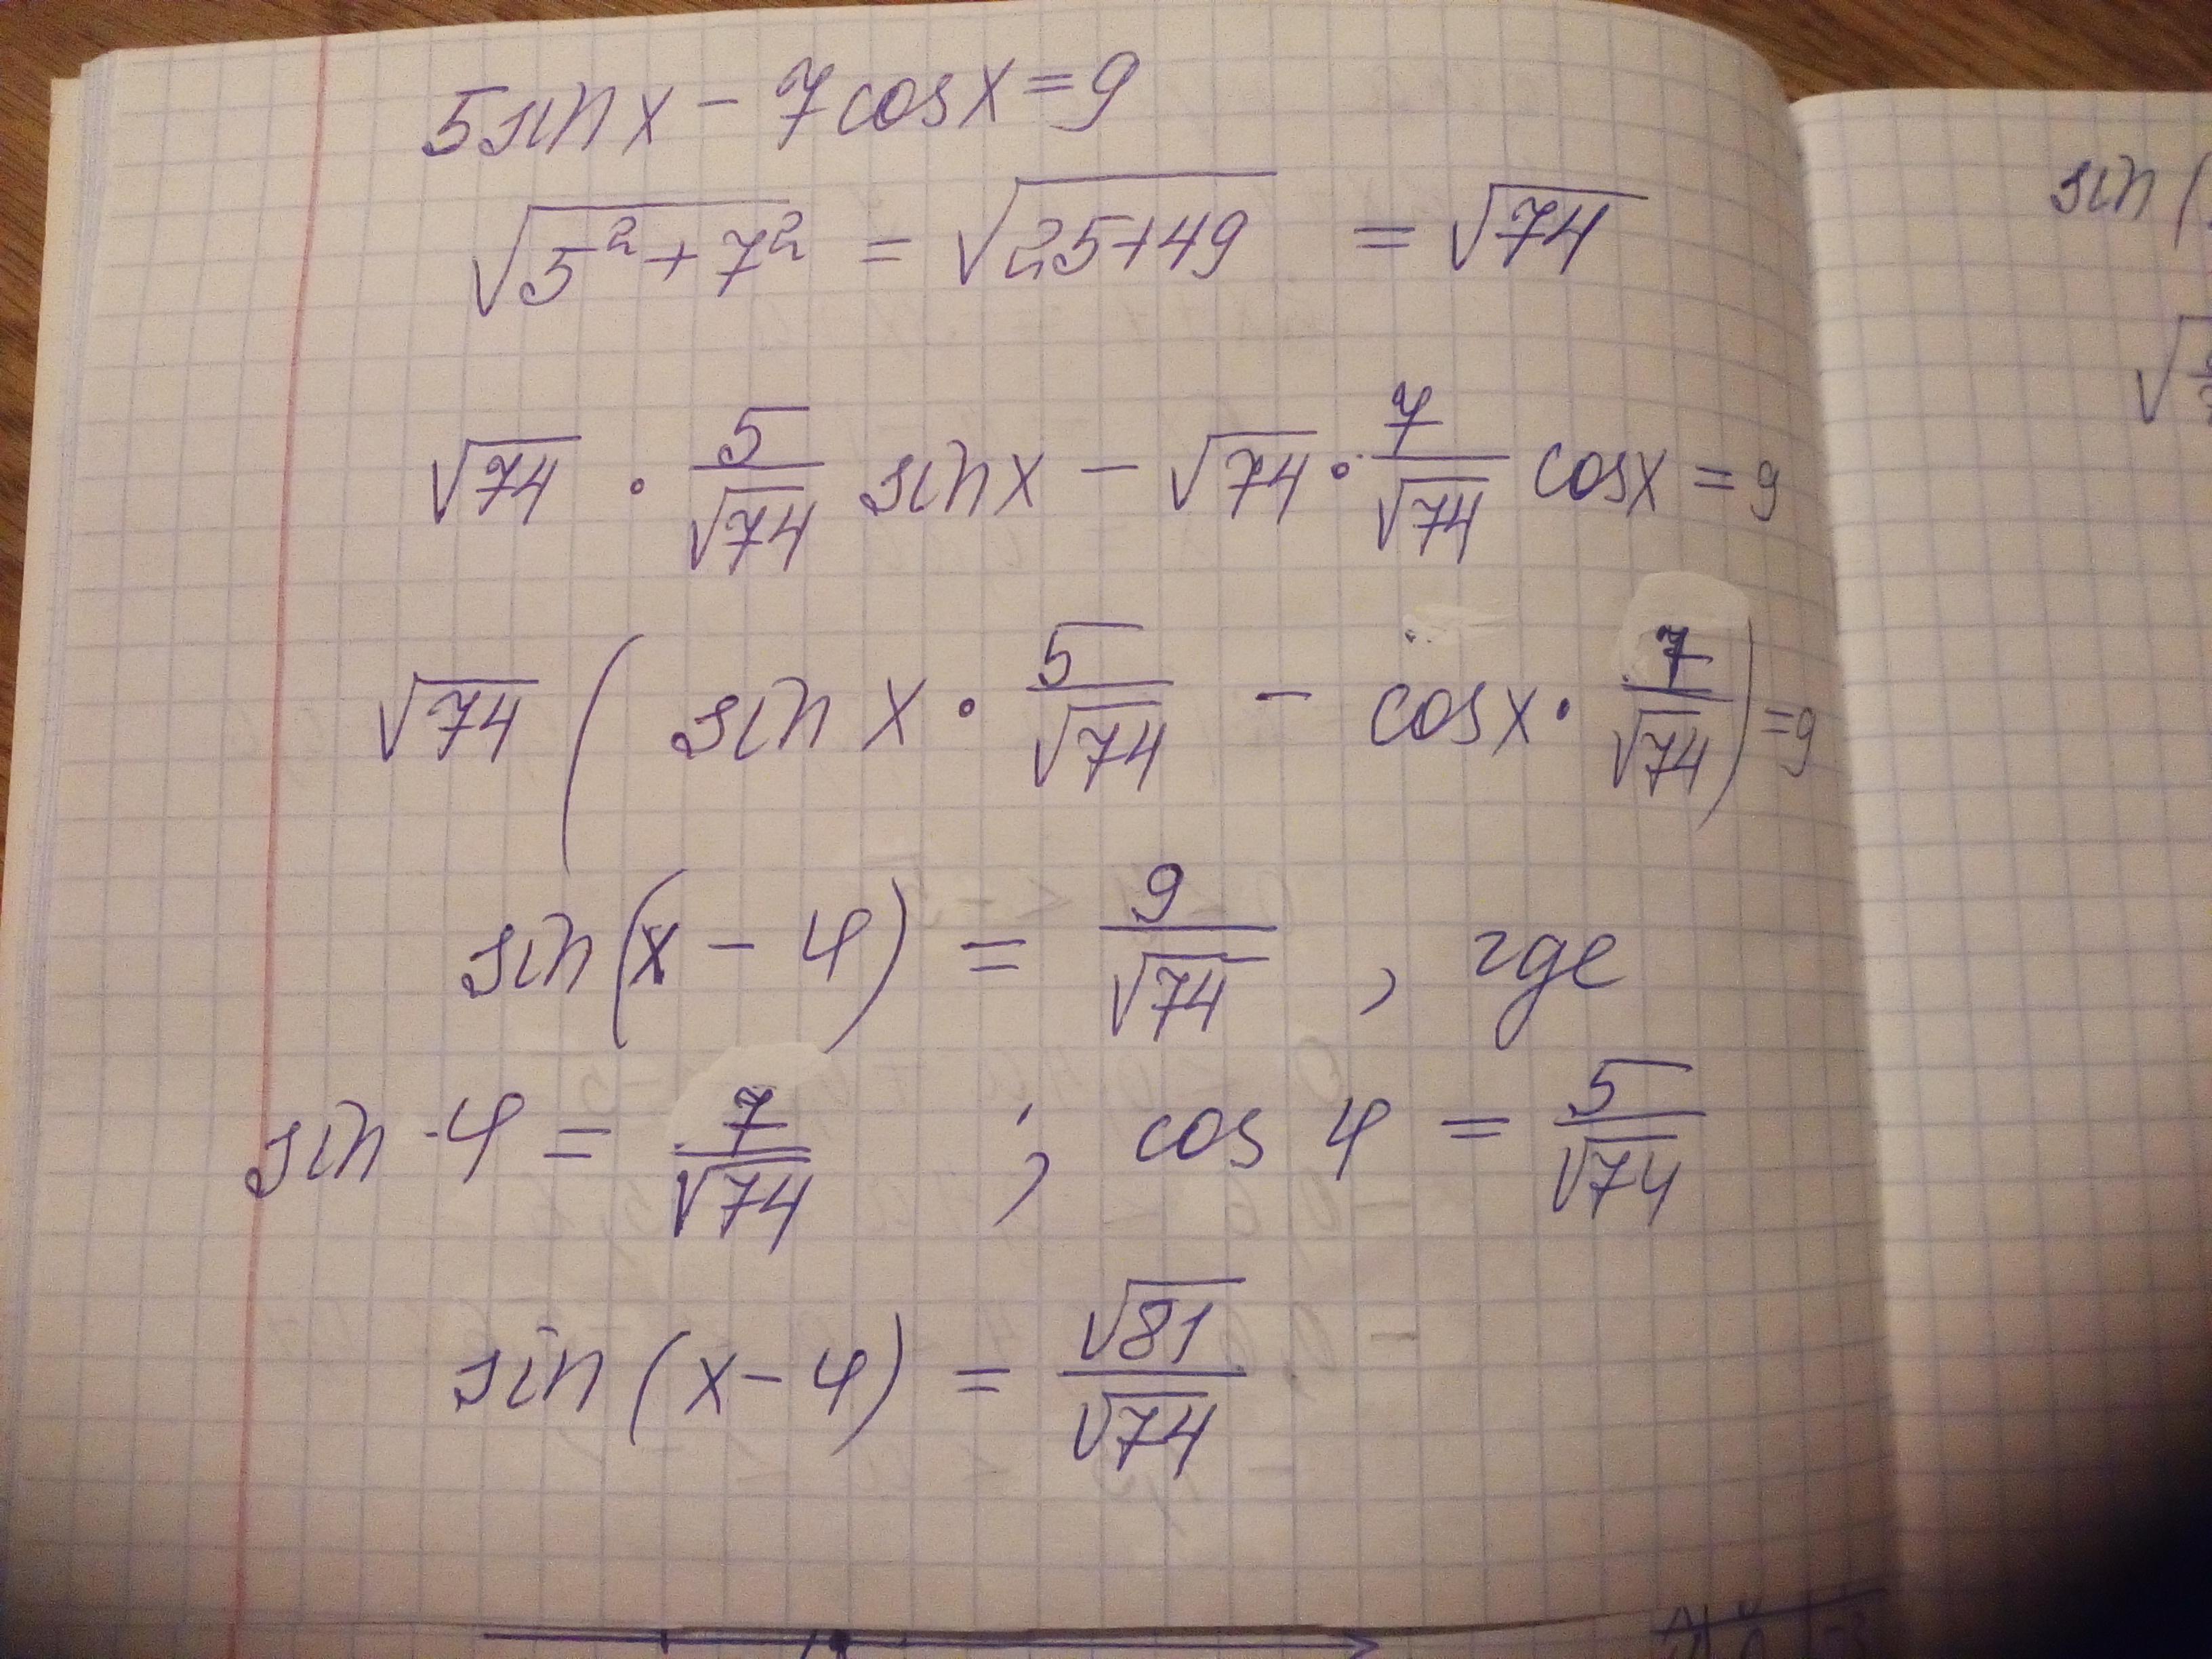 5 sin x - 7 cos x = 9
√(5² + 7²) = √(25+49) = √74
√74 · 5/√74 sin x - √74 · 7/√74 cos x = 9
√74 ( sin x · 5/√74 - cos x · 7/√74 ) = 9
sin(x - φ) = 9/√74 , где
sin φ = 7/√74 ; cos φ = 5/√74
sin (x - φ) = √81/√74
sin (